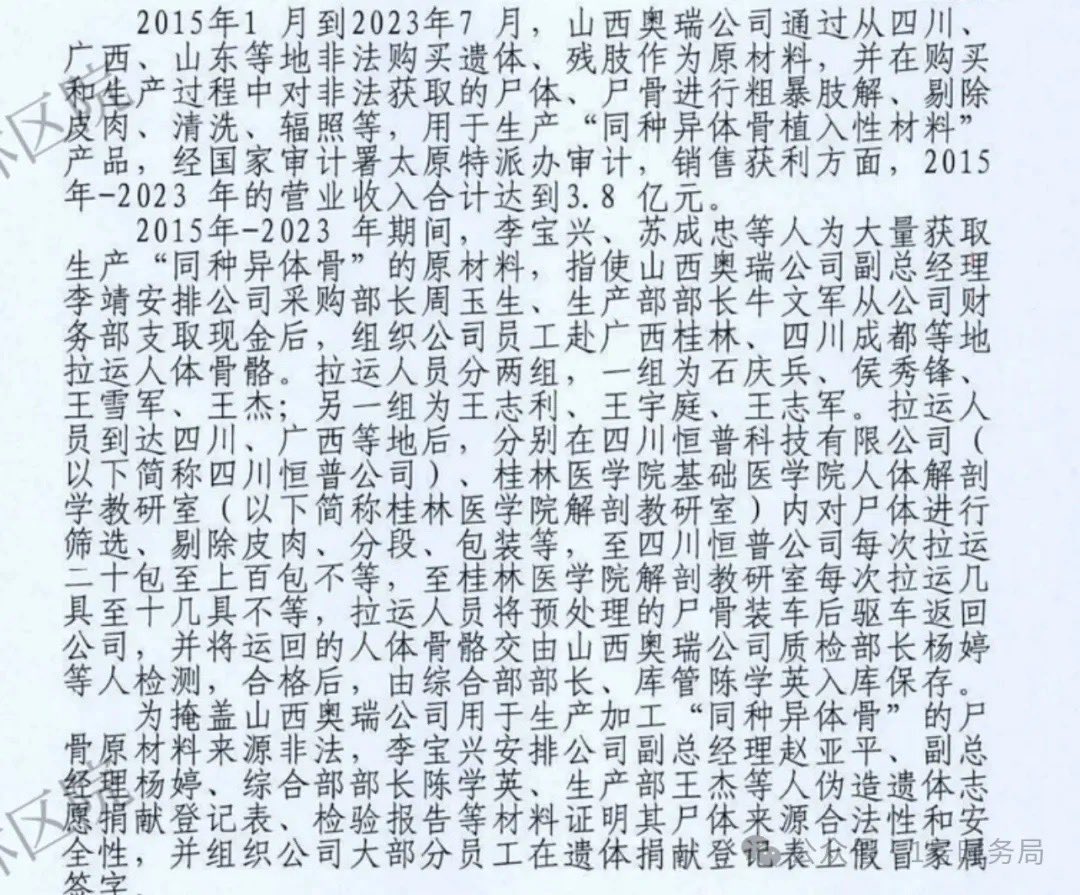 2015年1 月到2023年7 月，山西奥瑞公司通过从四川、
广西、山东等地非法购买遗体、残肢作为原材料，并在购买
和生产过程中对非法获取的尸体、尸骨进行粗暴肢解、剔除
皮肉、清洗、辐照等，用于生产“同种异体骨植入性材料”
产品，经国家审计署太原特派办审计，销售获利方面，2015
年-2023 年的营业收入合计达到3.8 亿元。
2015年-2023 年期间，李宝兴、苏成忠等人为大量获取
生产“同种异体骨”的原材料，指使山西奥瑞公司副总经理
李靖安排公司采购部长周玉生、生产部部长牛文军从公司财
务部支取现金后，组织公司员工赴广西桂林、四川成都等地
拉运人体骨骼。拉运人员分两组，一组为石庆兵、侯秀锋、
王雪军、王杰；另一组为王志利、王宇庭、王志军。拉运人
员到达四川、广西等地后，分别在四川恒普科技有限公司（
以下简称四川恒普公司）、桂林医学院基础医学院人体解剖
学教研室（以下简称桂林医学院解剖教研室）内对尸体进行
筛选、剔除皮肉、分段、包装等，至四川恒普公司每次拉运
二十包至上百包不等，至桂林医学院解剖教研室每次拉运几
具至十几具不等，拉运人员将预处理的尸骨装车后驱车返回
公司，并将运回的人体骨骼交由山西奥瑞公司质检部长杨婷
等人检测，合格后，由综合部部长、库管陈学英入库保存。
为掩盖山西奥瑞公司用于生产加工“同种异体骨”的尸
骨原材料来源非法，李宝兴安排公司副总经理赵亚平、副总
经理杨婷、综合部部长陈学英、生产部王杰等人伪造遗体志
愿捐献登记表、检验报告等材料证明其尸体来源合法性和安
全性，并组织公司大部分员工在遗体捐献登记表上假冒家属
签字，
区院
区院
公众号
务局